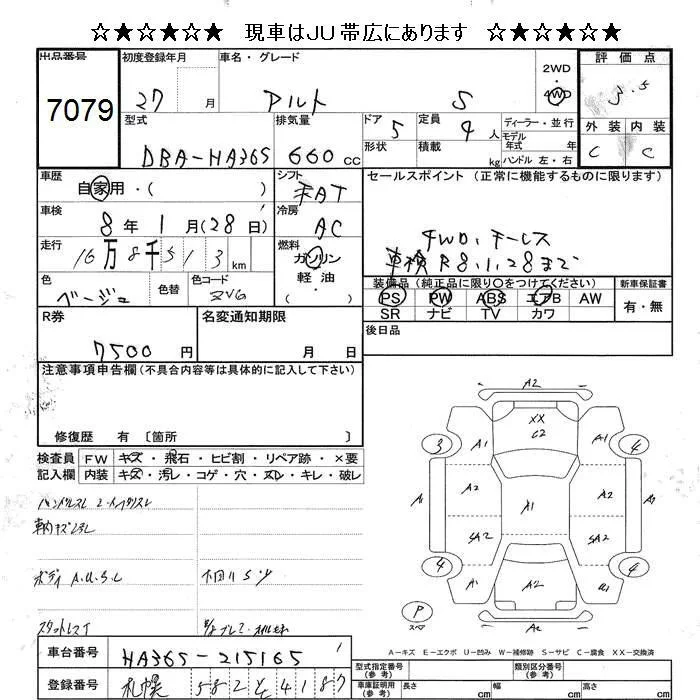 ☆★☆★☆★ 現車はJU帯広にあります ☆★☆★☆★
出品番号 初度登録年月 車名・グレード 2WD 評価点
7079 27 月 アルト S 4WD 3.5
型式 排気量 ドア 定員 ディーラー・並行 外装 内装
DBA-HA36S 660 cc 5 4 人 モデル年式 年 C C
形状 積載 kg ハンドル 左・右
車歴 シフト セールスポイント (正常に機能するものに限ります)
自家用・( ) AT
車検 冷房
8 年 1 月 (28 日) AC
走行 燃料 4WD、キーレス
16 万 8 千 513 km ガソリン 車検 R8.1.28まで
軽油
( )
色 色替 色コード 装備品 (純正品に限り○をつけてください) 新車保証書
ベージュ ZVG PS PW ABS エアB AW 有・無
SR ナビ TV カワ
R券 名変通知期限 後日品
7500 円 月 日
注意事項申告欄 (不具合内容等は具体的に記入して下さい)
修復歴 有 〔箇所 〕
検査員記入欄 FW キズ・飛石・ヒビ割・リペア跡・×要
内装 キズ・汚レ・コゲ・穴・ヌレ・キレ・破レ
ボディ A.U.S.C 下回りS
A2
XX
C2
3 A1 A1 4
A1 A2 A1 A2
SA2 SA2
4 4
A2
P
A2
A－キズ E－エクボ U－凹み W－補修跡 S－サビ C－腐食 XX－交換済
車台番号 HA36S-215165
登録番号 札幌 582 4187
型式指定番号 (参考) 類別区分番号 (参考)
車庫証明用 (参考) 長さ cm 幅 cm 高さ cm